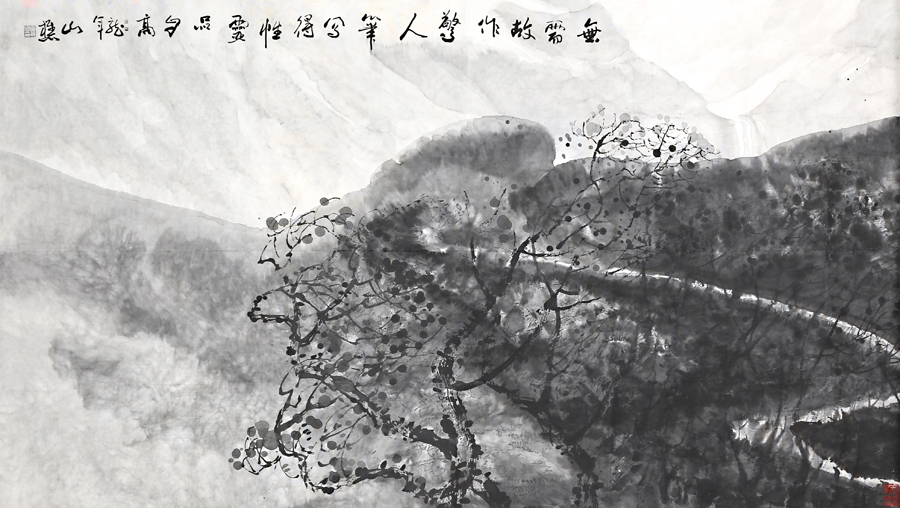 無需故作驚人筆寫得性靈品自高龍年山樵